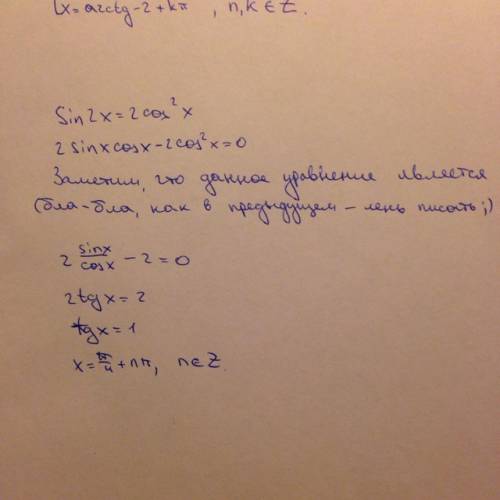 x = arctg -2 + kπ , n,k ∈ Z.
Sin2x = 2cos²x
2 sinx cosx - 2cos²x = 0
Заметим, что данное уравнение является
(бла-бла, как в предыдущем – лень писать ;)
2 sinx/cosx - 2 = 0
2 tg x = 2
tg x = 1
x = π/4 + nπ, n ∈ Z.